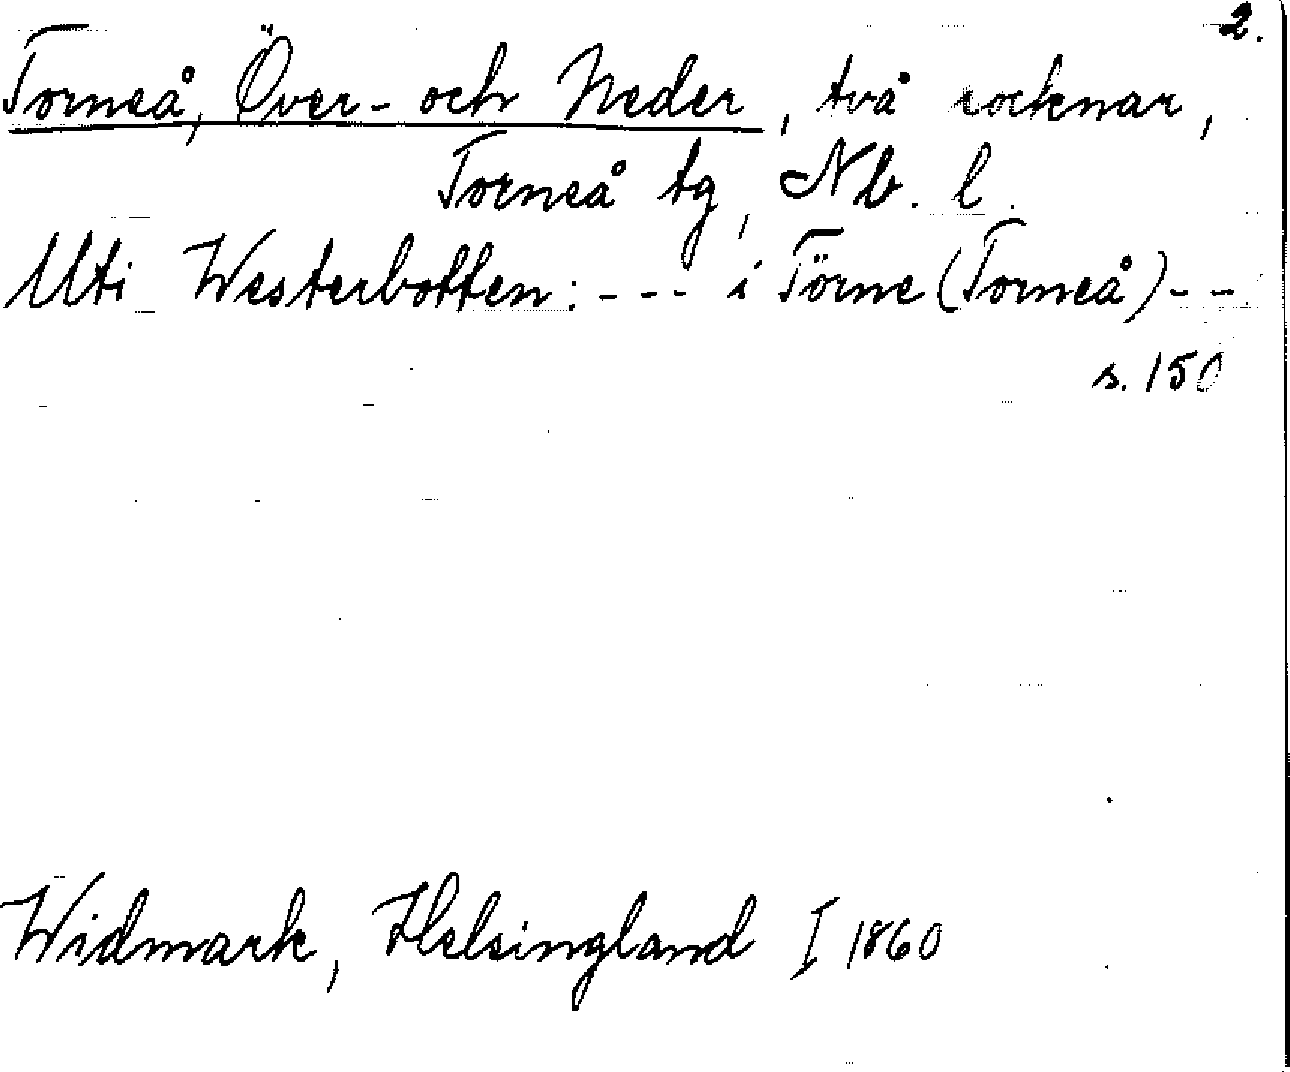 2.
Torneå, Över- och Neder, två socknar,
Torneå tg, Nb. l.
Uti Westerbotten: - - - i Törne (Torneå) - -
s. 150
Widmark, Helsingland I 1860